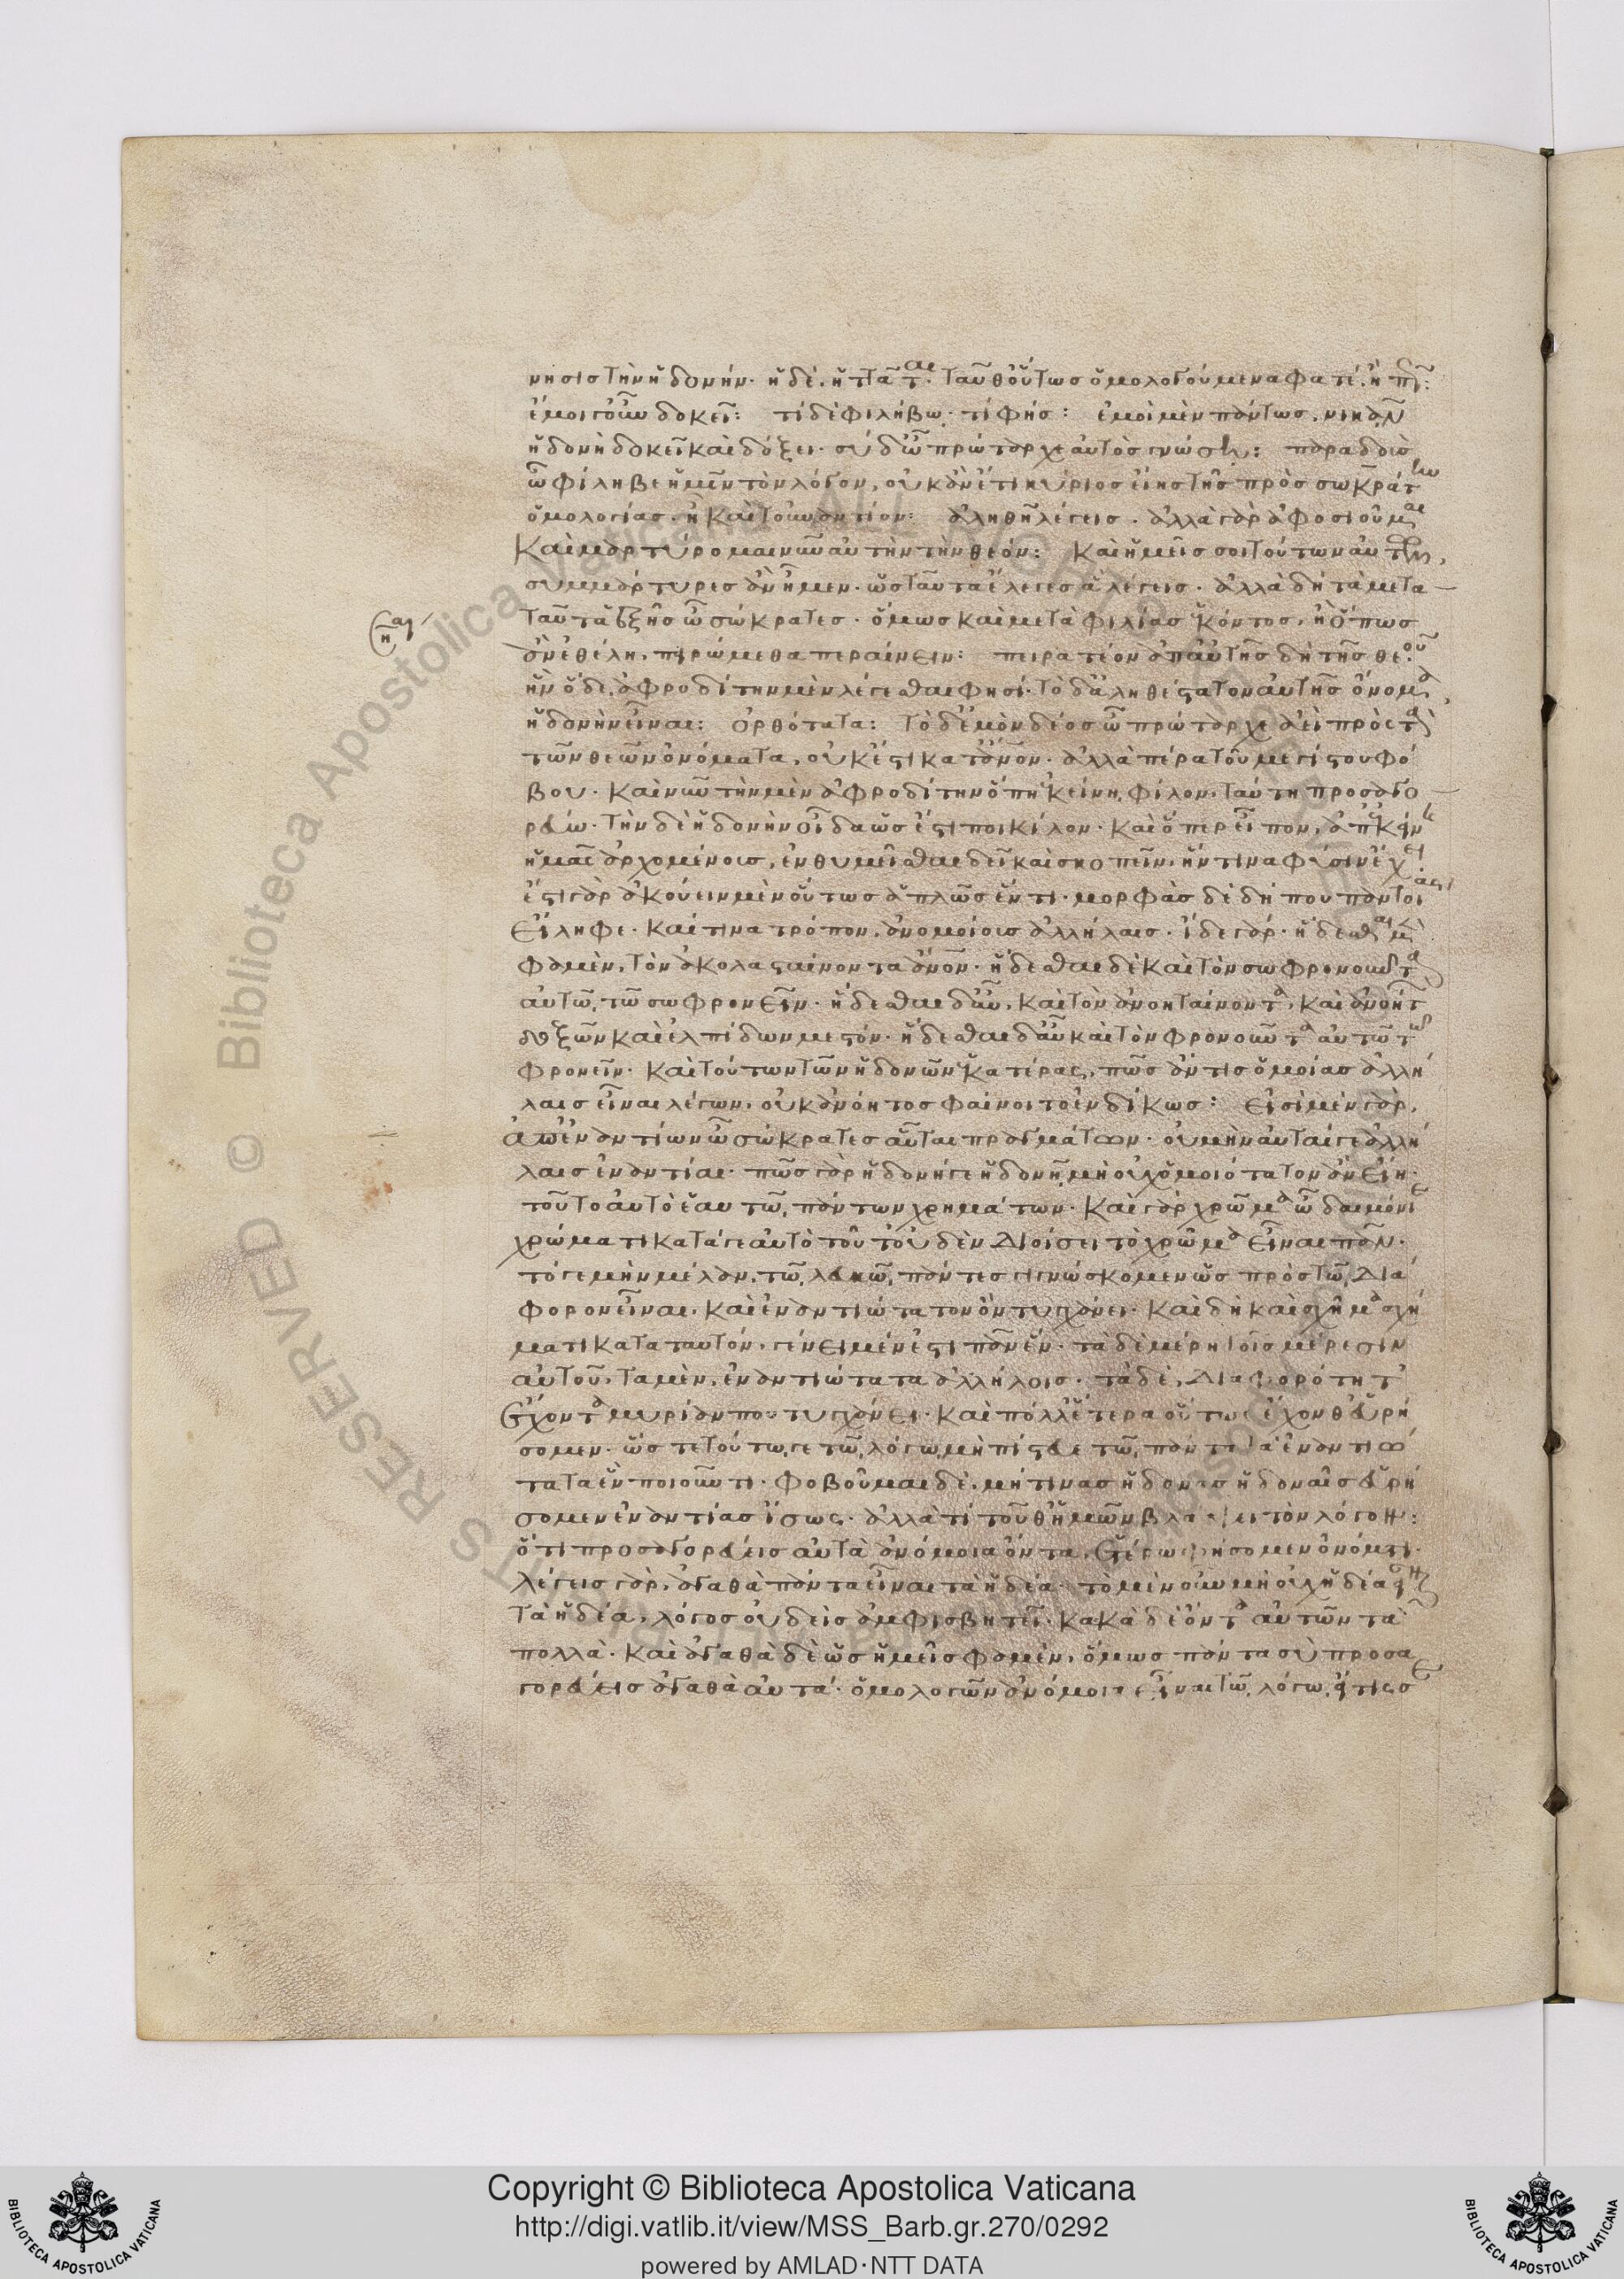 νησις τὴν ἡδονήν· ἡ δὲ, ἡττᾶται· ταῦθ οὕτως ὁμολογούμενά φατέ, ἢ πῶς:
ἔμοιγοῦν δοκεῖ: τί δὲ φιλήβω· τί φῆς: ἐμοὶ μὲν πάντως νικᾶν
ἡδονὴ δοκεῖ καὶ δόξει· σὺ δὲ ὦ πρώταρχε αὐτὸς γνώση: παραδοὺς
ὦ φίληβε ἡμῖν τὸν λόγον, οὐκ ἂν ἔτι κύριος εἴης τῆς πρὸς σωκράτην
ὁμολογίας, ἢ καὶ τοὐναντίον: ἀληθῆ λέγεις. ἀλλὰ γὰρ ἀφοσιοῦμαι
καὶ μαρτύρομαι νῦν αὐτὴν τὴν θεόν: καὶ ἡμεῖς σοι τούτων αὐτῶν,
συμμάρτυρες ἂν ἦμεν· ὡς ταῦτα ἔλεγες ἃ λέγεις. ἀλλὰ δὴ τὰ μετὰ
ταῦτα ἑξῆς ὦ σώκρατες· ὅμως καὶ μετὰ φιλίας ἑκόντος, ἢ ὅπως
ἂν ἐθέλη, πειρώμεθα περαίνειν: πειρατέον ἀπ αὐτῆς δὴ τῆς θεοῦ
ἣν ὅδε, ἀφροδίτην μὲν λέγεσθαι φησί· τὸ δ ἀληθέστατον αὐτῆς ὄνομα,
ἡδονὴν εἶναι: ὀρθότατα: τὸ δ ἐμὸν δέος ὦ πρώταρχε ἀεὶ πρὸς τὰ
τῶν θεῶν ὀνόματα, οὐκ ἔστι κατ ἄνθρωπον· ἀλλὰ πέρα τοῦ μεγίστου φό
βου· καὶ νῦν τὴν μὲν ἀφροδίτην ὅπη ἐκείνη φίλον, ταύτη προσαγο
ρεύω· τὴν δὲ ἡδονὴν οἶδα ὡς ἔστι ποικίλον· καὶ ὅπερ εἶπον, ἀπ ἐκείνης
ἡμᾶς ἀρχομένους, ἐνθυμεῖσθαι δεῖ καὶ σκοπεῖν, ἥντινα φύσιν ἔχει
ἔστι γὰρ ἀκούειν μὲν οὕτως ἁπλῶς ἕν τι· μορφὰς δὲ δήπου παντοίας
εἴληφε· καί τινα τρόπον, ἀνομοίους ἀλλήλαις· ἴδε γάρ· ἥδεσθαι μὲν
φαμὲν, τὸν ἀκολασταίνοντα ἄνθρωπον· ἥδεσθαι δὲ καὶ τὸν σωφρονοῦντα
αὐτῶ τῶ σωφρονεῖν· ἥδεσθαι δ αὖ, καὶ τὸν ἀνοηταίνοντα, καὶ ἀνοήτων
δοξῶν καὶ ἐλπίδων μεστόν· ἥδεσθαι δ αὖ καὶ τὸν φρονοῦντα αὐτῶ τῶ
φρονεῖν· καὶ τούτων τῶν ἡδονῶν ἑκατέρας, πῶς ἄν τις ὁμοίας ἀλλή
λαις εἶναι λέγων, οὐκ ἀνόητος φαίνοιτο ἐνδίκως: εἰσὶ μὲν γὰρ,
ἀπ ἐναντίων ὦ σώκρατες αὗται πραγμάτων· οὐ μὴν αὐταί γε ἀλλή
λαις ἐναντίαι· πῶς γὰρ ἡδονή γε ἡδονῆ, μὴ οὐχ ὁμοιότατον ἂν εἴη·
τοῦτο αὐτὸ ἑαυτῶ, πάντων χρημάτων· καὶ γὰρ χρῶμα ὦ δαιμόνιε
χρώματι κατά γε αὐτὸ τοῦτο οὐδὲν διοίσει τὸ χρῶμα εἶναι πᾶν·
τό γε μὴν μέλαν, τῶ λευκῶ, πάντες γιγνώσκομεν ὡς πρὸς τῶ διά
φορον εἶναι, καὶ ἐναντιώτατον ὂν τυγχάνει· καὶ δὴ καὶ σχῆμα σχή
ματι κατὰ ταυτόν, γένει μέν ἐστι πᾶν ἕν· τὰ δὲ μέρη τοῖς μέρεσιν
αὐτοῦ, τὰ μὲν, ἐναντιώτατα ἀλλήλοις· τὰ δὲ, διαφορότητ
ἔχοντα μυρίαν που τυγχάνει· καὶ πόλλ ἕτερα οὕτως ἔχονθ εὑρή
σομεν· ὥστε τούτω γε τῶ λόγω, μὴ πίστευε τῶ πάντα τὰ ἐναντιώ
τατα ἓν ποιοῦντι· φοβοῦμαι δὲ, μή τινας ἡδονὰς ἡδοναῖς εὑρή
σομεν ἐναντίας ἴσως· ἀλλὰ τί τοῦθ ἡμῶν βλάψει τὸν λόγον:
ὅτι προσαγορεύεις αὐτὰ ἀνόμοια ὄντα, ἑτέρω φήσομεν ὀνόματι·
λέγεις γὰρ, ἀγαθὰ πάντα εἶναι τὰ ἡδέα· τὸ μὲν οὖν μὴ οὐχ ἡδέα εἶναι
τὰ ἡδέα, λόγος οὐδεὶς ἀμφισβητεῖ· κακὰ δὲ ὄντα αὐτῶν τὰ
πολλὰ· καὶ ἀγαθὰ δὲ ὡς ἡμεῖς φαμὲν, ὅμως πάντα σὺ προσα
γορεύεις ἀγαθὰ αὐτά· ὁμολογῶν ἀνόμοια εἶναι τῶ λόγω, εἴ τις σε